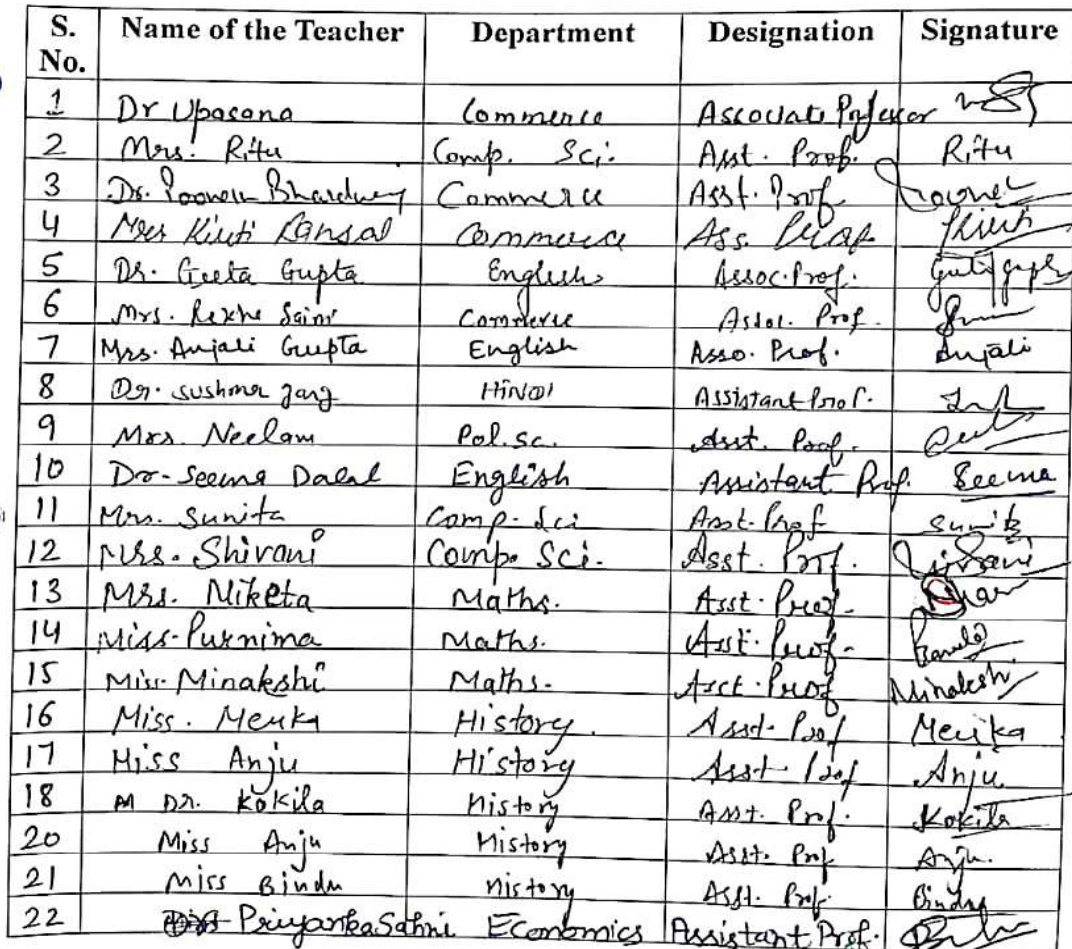 S. No. Name of the Teacher Department Designation Signature
1 Dr Upasana Commerce Associate Professor
2 Mrs. Ritu Comp. Sci. Asst. Prof. Ritu
3 Dr. Poonam Bhardwaj Commerce Asst. Prof
4 Kirti Bansal Commerce Ass. Prof Kirti
5 Dr. Geeta Gupta English Assoc. Prof. Geeta Gupta
6 Mrs. Rekha Saini Commerce Assoc. Prof.
7 Mrs. Anjali Gupta English Asso. Prof. Anjali
8 Dr. Sushma Garg HINDI Assistant Prof.
9 Mrs. Neelam Pol. Sc. Asst. Prof.
10 Dr-Seema Dalal English Assistant Prof. Seema
11 Mrs. Sunita Comp-Sci Asst. Prof Sunita
12 Mrs. Shivani Comp. Sci. Asst. Prof. Shivani
13 Mrs. Niketa Maths. Asst. Prof.
14 Miss. Purnima Maths. Asst. Prof.
15 Miss. Minakshi Maths. Asst. Prof Minakshi
16 Miss. Menka History. Asst. Prof Menka
17 Miss Anju History Asst Prof Anju
18 Dr. Kokila History Asst. Prof. Kokila
20 Miss Anju History Asst. Prof Anju.
21 Miss Bindu History Asst. Prof. Bindu
22 Priyanka Sahni Economics Assistant Prof.